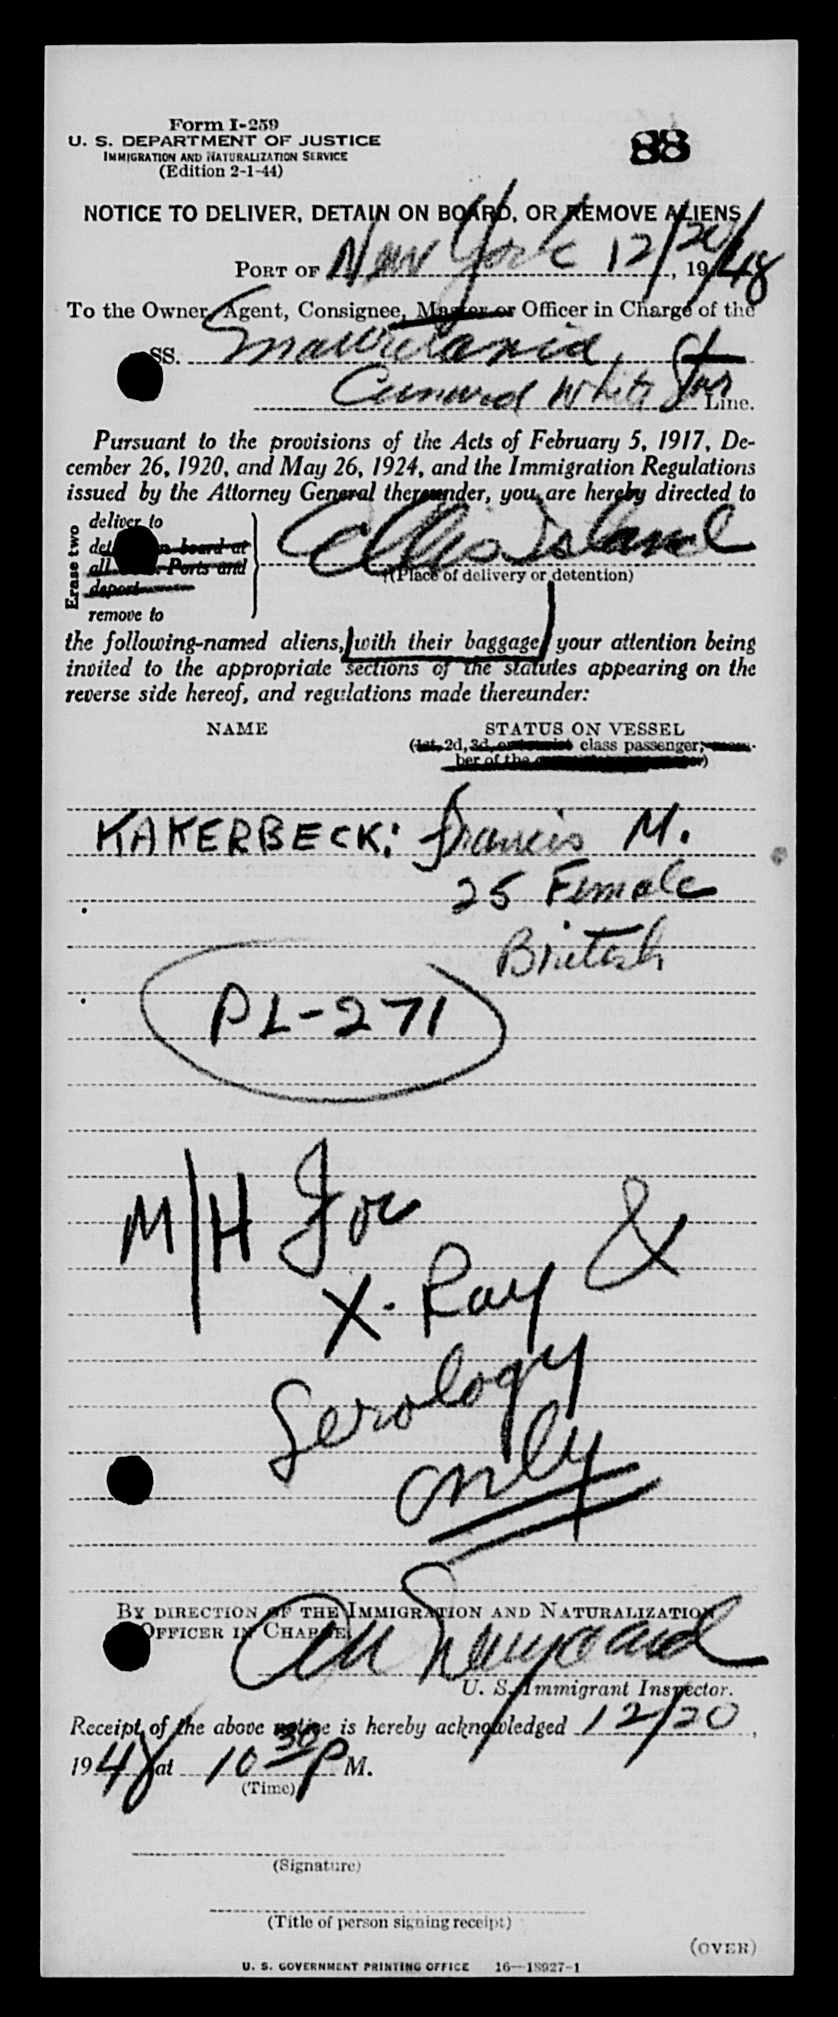 Form I-259
U. S. DEPARTMENT OF JUSTICE
IMMIGRATION AND NATURALIZATION SERVICE
(Edition 2-1-44)
88
NOTICE TO DELIVER, DETAIN ON BOARD, OR REMOVE ALIENS
PORT OF New York 12/20/, 1948
To the Owner, Agent, Consignee, Master or Officer in Charge of the
SS. Mauretania,
Cunard White Star Line.
Pursuant to the provisions of the Acts of February 5, 1917, De-
cember 26, 1920, and May 26, 1924, and the Immigration Regulations
issued by the Attorney General thereunder, you are hereby directed to
Erase two
deliver to
board at
Ports and
deport
remove to
Ellis Island
(Place of delivery or detention)
the following-named aliens, with their baggage, your attention being
invited to the appropriate sections of the statutes appearing on the
reverse side hereof, and regulations made thereunder:
NAME STATUS ON VESSEL
(1st, 2d, 3d, or tourist class passenger, mem-
ber of the
KAKERBECK: Francis M.
25 Female
British
PL-271
M/H For
X-Ray &
Serology
only
BY DIRECTION OF THE IMMIGRATION AND NATURALIZATION
OFFICER IN CHARGE
U. S. Immigrant Inspector.
Receipt of the above notice is hereby acknowledged 12/20,
1948 at 10 30 P M.
(Time)
(Signature)
(Title of person signing receipt)
(OVER)
U. S. GOVERNMENT PRINTING OFFICE 16—18927-1